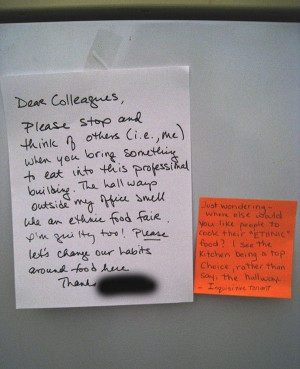 Dear Colleagues,
Please stop and
think of others (i.e., me)
when you bring something
to eat into this professional
building. The hallways
outside my office smell
like an ethnic food fair.
I'm guilty too! Please
let's change our habits
around food here
Thanks
Just wondering -
where else would
you like people to
cook their "ETHNIC"
food? I see the
Kitchen being a top
choice, rather than
say, the hallway.
- Inquisitive